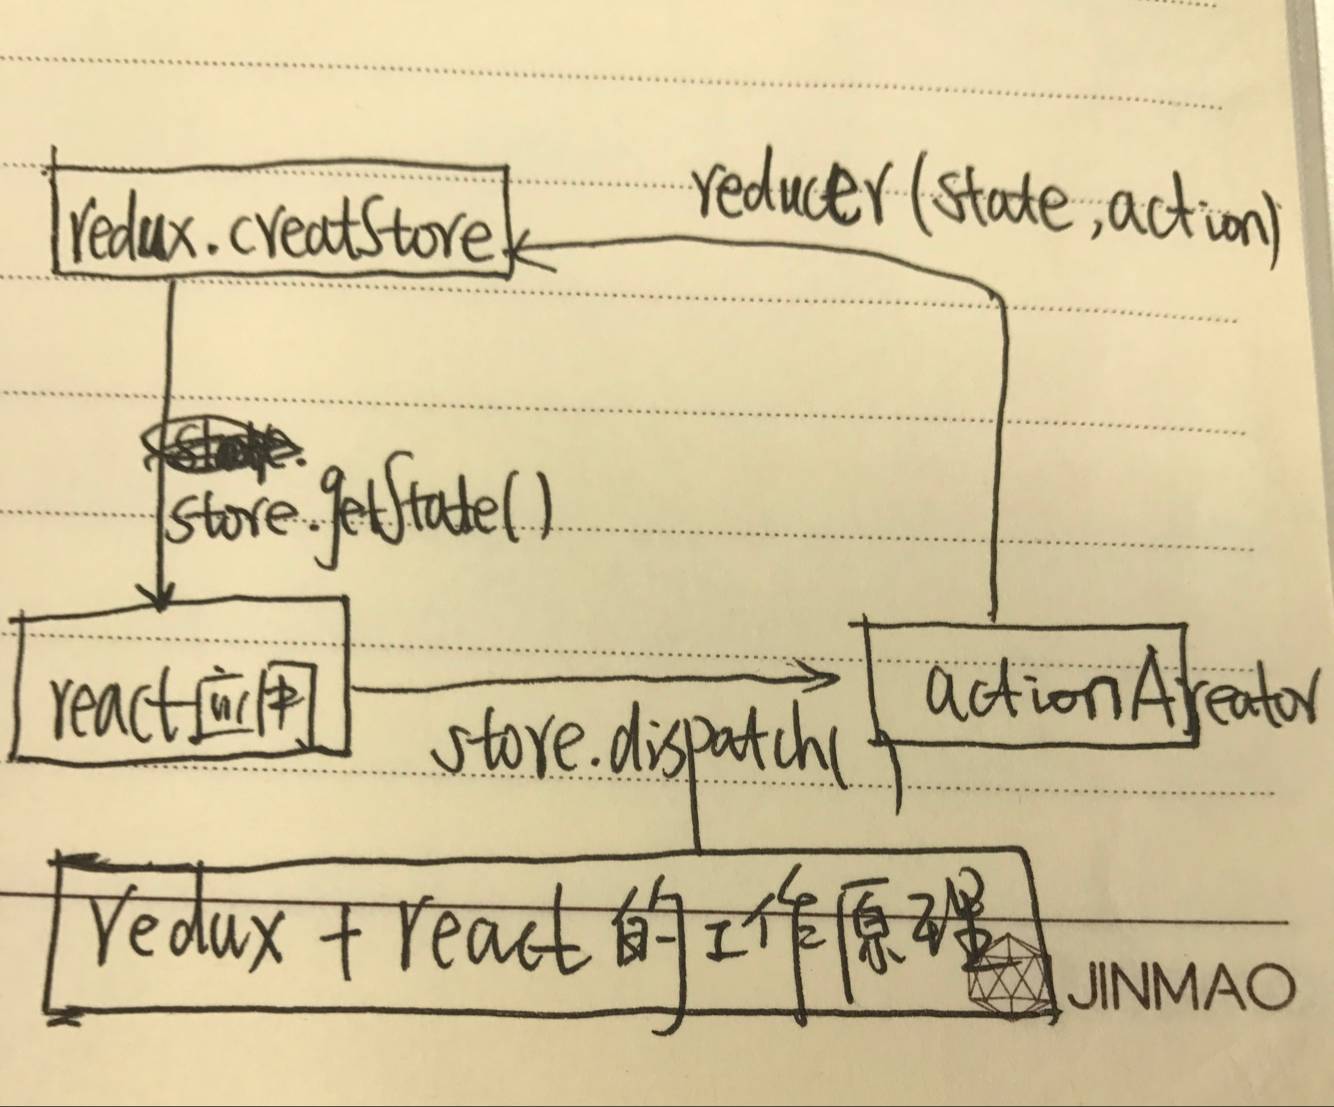 redux.creatStore
reducer(state,action)
store.getState()
react应用
store.dispatch( )
actionAreator
redux + react 的工作原理
JINMAO